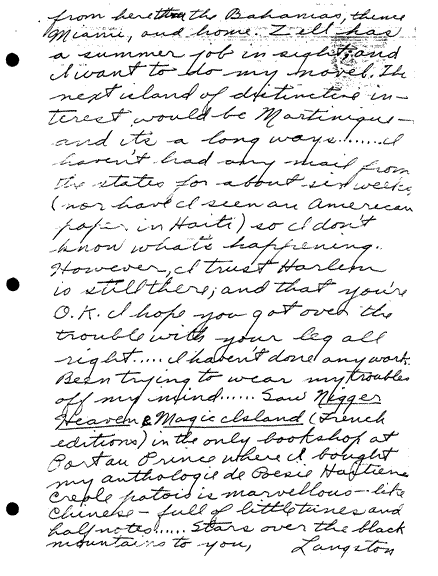 from here thru the Bahamas, thence
Miami, and home. Zell has
a summer job in sight, and
I want to do my novel. The
next island of distinctive in-
terest would be Martinique —
and it's a long ways........ I
haven't had any mail from
the states for about six weeks
(nor have I seen an American
paper in Haiti) so I don't
know what's happening.
However, I trust Harlem
is still there, and that you're
O.K. I hope you got over the
trouble with your leg all
right..... I haven't done any work.
Been trying to wear my troubles
off my mind...... Saw Nigger
Heaven & Magic Island (French
editions) in the only bookshop at
Port au Prince where I bought
my anthologie de Poesie Haitiene
Creole patois is marvellous — like
Chinese — full of little tunes and
half notes...... Stars over the black
mountains to you, Langston